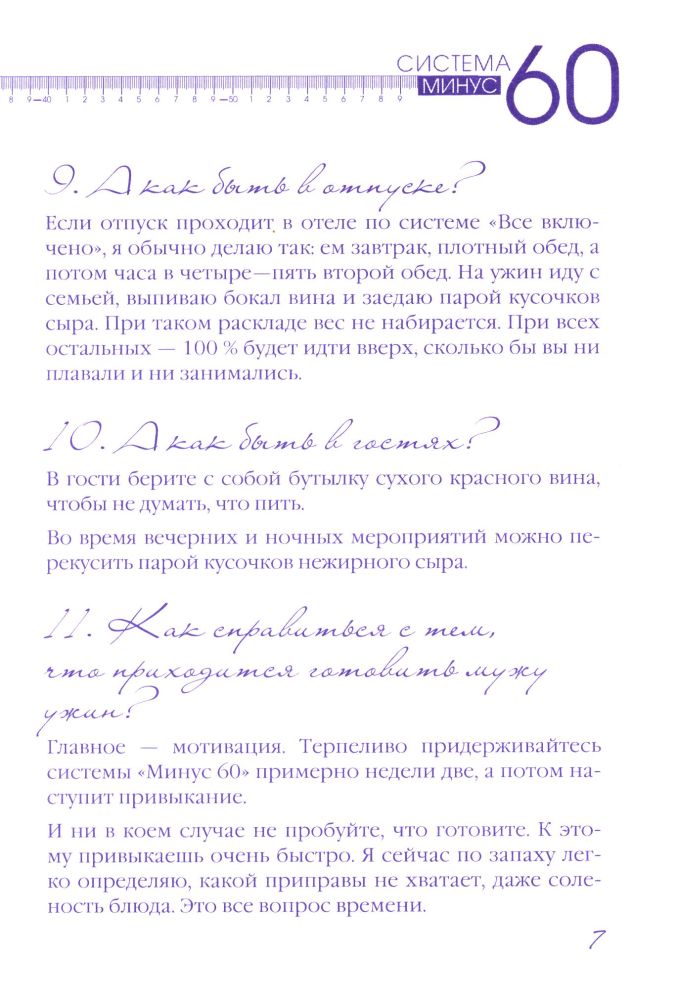 СИСТЕМА
МИНУС 60
8 9—40 1 2 3 4 5 6 7 8 9—50 1 2 3 4 5 6 7 8 9
9. А как быть в отпуске?
Если отпуск проходит в отеле по системе «Все вклю-
чено», я обычно делаю так: ем завтрак, плотный обед, а
потом часа в четыре—пять второй обед. На ужин иду с
семьей, выпиваю бокал вина и заедаю парой кусочков
сыра. При таком раскладе вес не набирается. При всех
остальных — 100 % будет идти вверх, сколько бы вы ни
плавали и ни занимались.
10. А как быть в гостях?
В гости берите с собой бутылку сухого красного вина,
чтобы не думать, что пить.
Во время вечерних и ночных мероприятий можно пе-
рекусить парой кусочков нежирного сыра.
11. Как справиться с тем,
что приходится готовить мужу
ужин?
Главное — мотивация. Терпеливо придерживайтесь
системы «Минус 60» примерно недели две, а потом на-
ступит привыкание.
И ни в коем случае не пробуйте, что готовите. К это-
му привыкаешь очень быстро. Я сейчас по запаху лег-
ко определяю, какой приправы не хватает, даже соле-
ность блюда. Это все вопрос времени.
7